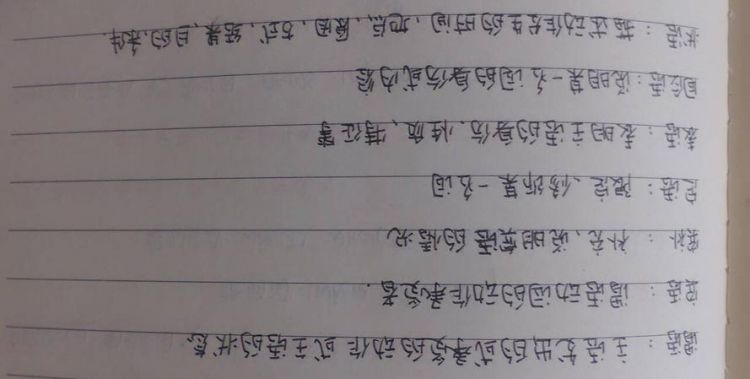 谓语：主语发出的或承受的动作或主语的状态
宾语：谓语动词的动作承受者.
宾补：补充、说明宾语的情况
定语：限定、修饰某一名词
表语：表明主语的身份、性质、特征等
同位语：说明某一名词的身份或内容
状语：描述动作发生的时间、地点、原因、方式、结果、目的、条件.